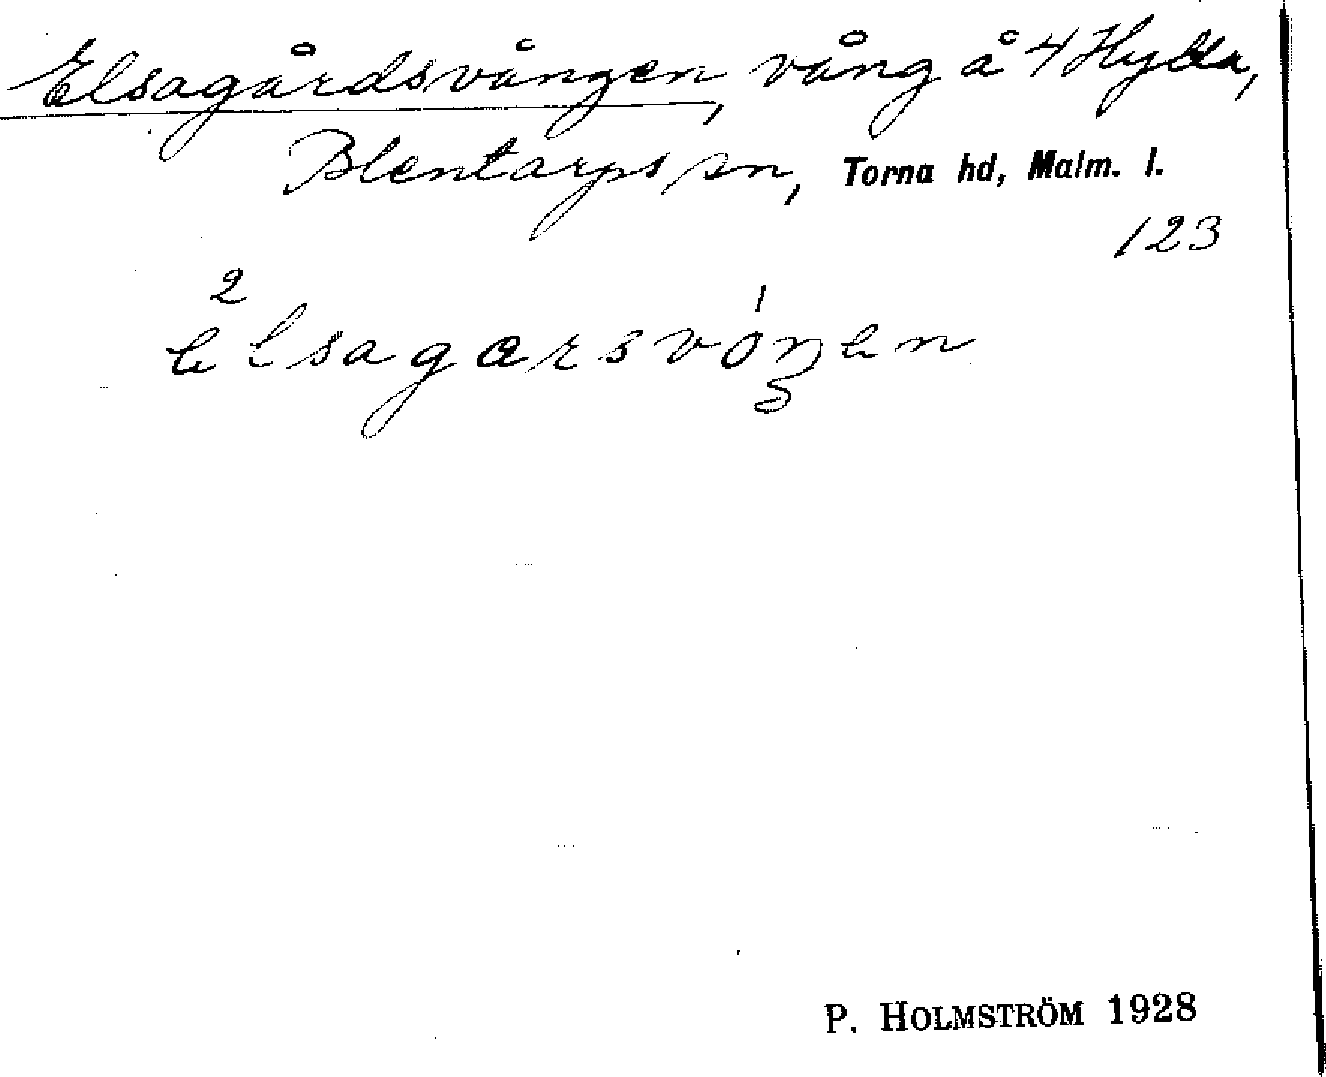 Elsagårdsvången, vång å 4 Hylla,
Blentarps sn, Torna hd, Malm. l.
123
2 1
elsagarsvóŋen
P. HOLMSTRÖM 1928